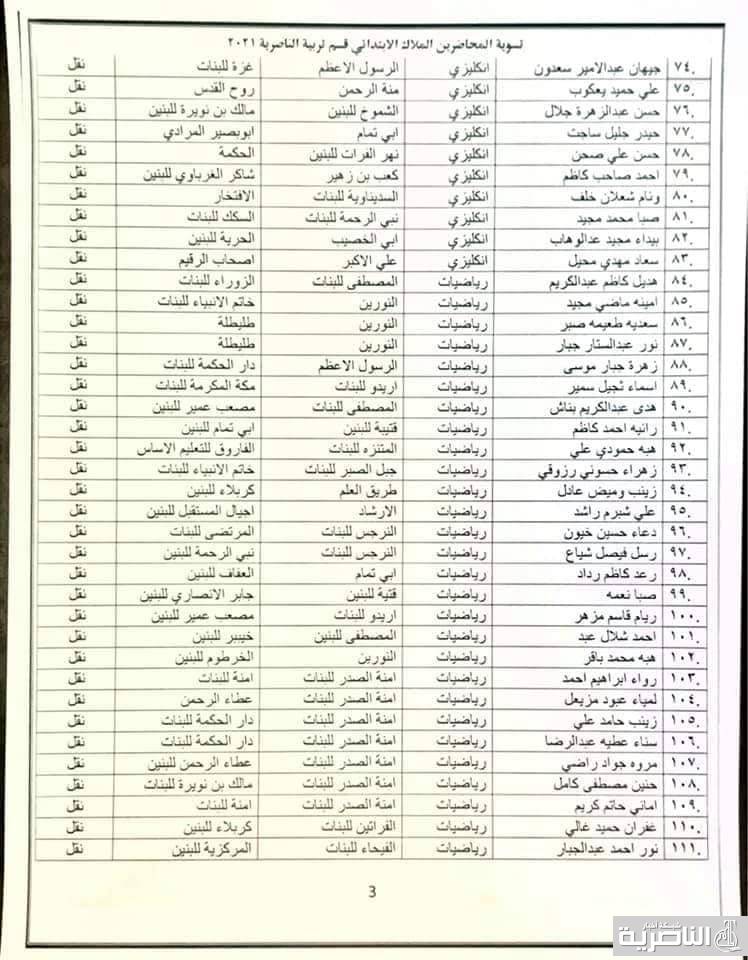 تسوية المحاضرين الملاك الابتدائي قسم تربية الناصرية ٢٠٢١
٧٤. جيهان عبدالامير سعدون انكليزي الرسول الاعظم غزة للبنات نقل
٧٥. علي حميد يعكوب انكليزي منة الرحمن روح القدس نقل
٧٦. حسن عبدالزهرة جلال انكليزي الشموخ للبنين مالك بن نويرة للبنين نقل
٧٧. حيدر جليل ساجت انكليزي ابي تمام ابوبصير المرادي نقل
٧٨. حسن علي صحن انكليزي نهر الفرات للبنين الحكمة نقل
٧٩. احمد صاحب كاظم انكليزي كعب بن زهير شاكر الغرباوي للبنين نقل
٨٠. ونام شعلان خلف انكليزي السديناوية للبنات الافتخار نقل
٨١. صبا محمد مجيد انكليزي نبي الرحمة للبنات السكك للبنات نقل
٨٢. بيداء مجيد عدالوهاب انكليزي ابي الخصيب الحرية للبنين نقل
٨٣. سعاد مهدي محيل انكليزي علي الاكبر اصحاب الرقيم نقل
٨٤. هديل كاظم عبدالكريم رياضيات المصطفى للبنات الزوراء للبنات نقل
٨٥. امينه ماضي مجيد رياضيات النورين خاتم الانبياء للبنات نقل
٨٦. سعديه طعيمه صبر رياضيات النورين طليطلة نقل
٨٧. نور عبدالستار جبار رياضيات النورين طليطلة نقل
٨٨. زهرة جبار موسى رياضيات الرسول الاعظم دار الحكمة للبنات نقل
٨٩. اسماء ثجيل سمير رياضيات اريدو للبنات مكة المكرمة للبنات نقل
٩٠. هدى عبدالكريم بناش رياضيات المصطفى للبنات مصعب عمير للبنين نقل
٩١. رانيه احمد كاظم رياضيات قتيبة للبنين ابي تمام للبنين نقل
٩٢. هبه حمودي علي رياضيات المتنزه للبنات الفاروق للتعليم الاساس نقل
٩٣. زهراء حسوني رزوقي رياضيات جبل الصبر للبنات خاتم الانبياء للبنات نقل
٩٤. زينب وميض عادل رياضيات طريق العلم كربلاء للبنين نقل
٩٥. علي شبرم راشد رياضيات الارشاد اجيال المستقبل للبنين نقل
٩٦. دعاء حسين خيون رياضيات النرجس للبنات المرتضى للبنات نقل
٩٧. رسل فيصل شياع رياضيات النرجس للبنات نبي الرحمة للبنين نقل
٩٨. رعد كاظم رداد رياضيات ابي تمام العفاف للبنين نقل
٩٩. صبا نعمه رياضيات قتية للبنين جابر الانصاري للبنين نقل
١٠٠. ريام قاسم مزهر رياضيات اريدو للبنات مصعب عمير للبنين نقل
١٠١. احمد شلال عبد رياضيات المصطفى للبنين خيبر للبنين نقل
١٠٢. هبه محمد باقر رياضيات النورين الخرطوم للبنين نقل
١٠٣. رواء ابراهيم احمد رياضيات امنة الصدر للبنات امنة للبنات نقل
١٠٤. لمياء عبود مزيعل رياضيات امنة الصدر للبنات عطاء الرحمن نقل
١٠٥. زينب حامد علي رياضيات امنة الصدر للبنات دار الحكمة للبنات نقل
١٠٦. سناء عطيه عبدالرضا رياضيات امنة الصدر للبنات دار الحكمة للبنات نقل
١٠٧. مروه جواد راضي رياضيات امنة الصدر للبنات عطاء الرحمن للبنين نقل
١٠٨. حنين مصطفى كامل رياضيات امنة الصدر للبنات مالك بن نويرة للبنات نقل
١٠٩. اماني حاتم كريم رياضيات امنة الصدر للبنات امنة للبنات نقل
١١٠. غفران حميد غالي رياضيات الفراتين للبنات كربلاء للبنين نقل
١١١. نور احمد عبدالجبار رياضيات الفيحاء للبنات المركزية للبنين نقل
3
شبكة اخبار
الناصرية